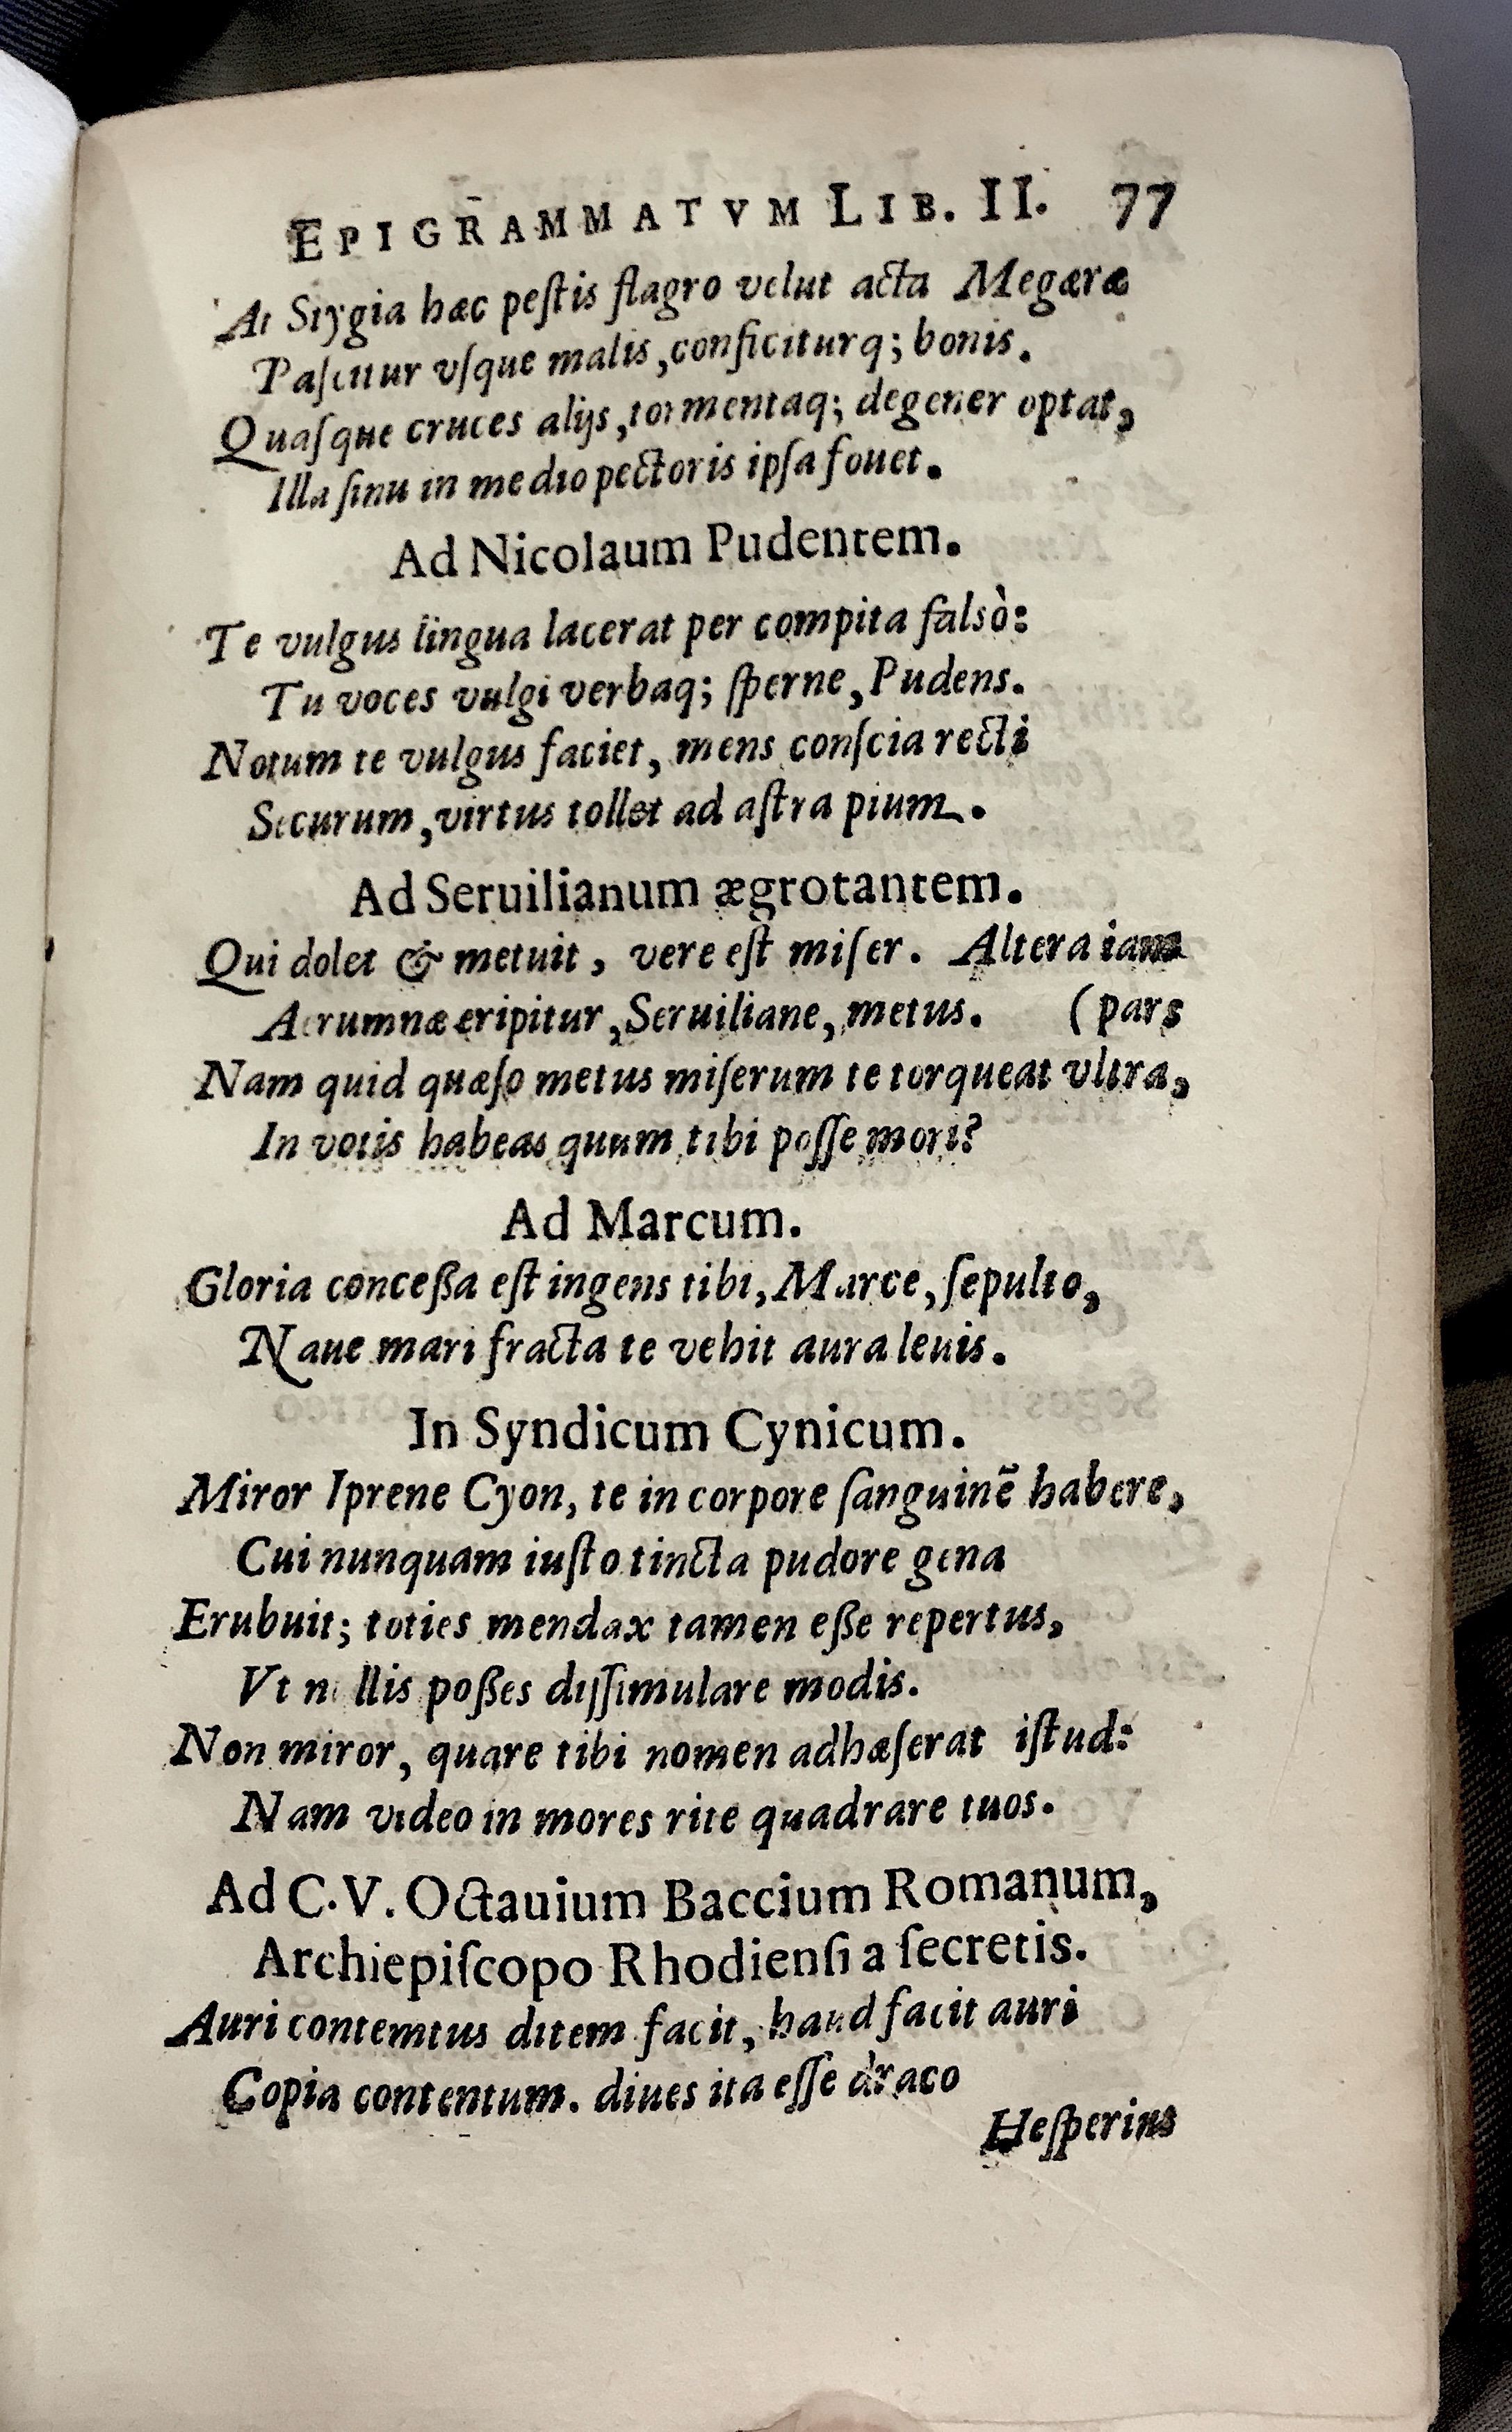 EPIGRAMMATVM LIB. II. 77
At Stygia hæc peſtis flagro velut acta Megæræ
Paſcitur vſque malis, conficiturq; bonis.
Quaſque cruces alijs, tormentaq; degener optat,
Illa ſinu in medio pectoris ipſa fouet.
Ad Nicolaum Pudentem.
Te vulgus lingua lacerat per compita falsò:
Tu voces vulgi verbaq; ſperne, Pudens.
Notum te vulgus faciet, mens conſcia recti
Securum, virtus tollet ad aſtra pium.
Ad Seruilianum ægrotantem.
Qui dolet & metuit, vere eſt miſer. Altera iam
Aerumnæ eripitur, Seruiliane, metus. (pars
Nam quid quæſo metus miſerum te torqueat vltra,
In votis habeas quum tibi poſſe mori?
Ad Marcum.
Gloria conceßa eſt ingens tibi, Marce, ſepulto,
Naue mari fracta te vehit aura leuis.
In Syndicum Cynicum.
Miror Iprene Cyon, te in corpore ſanguinē habere,
Cui nunquam iuſto tincta pudore gena
Erubuit; toties mendax tamen eße repertus,
Vt nullis poßes diſſimulare modis.
Non miror, quare tibi nomen adhæſerat iſtud:
Nam video in mores rite quadrare tuos.
Ad C.V. Octauium Baccium Romanum,
Archiepiſcopo Rhodienſi a ſecretis.
Auri contemtus ditem facit, haud facit auri
Copia contentum. diues ita eſſe draco
Heſperius